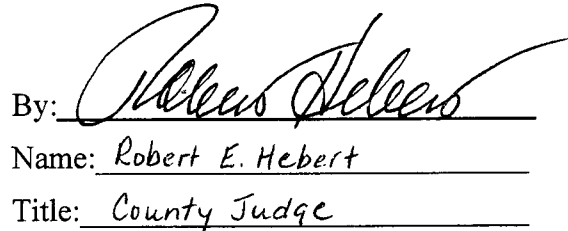 By: Robert Hebert
Name: Robert E. Hebert
Title: County Judge